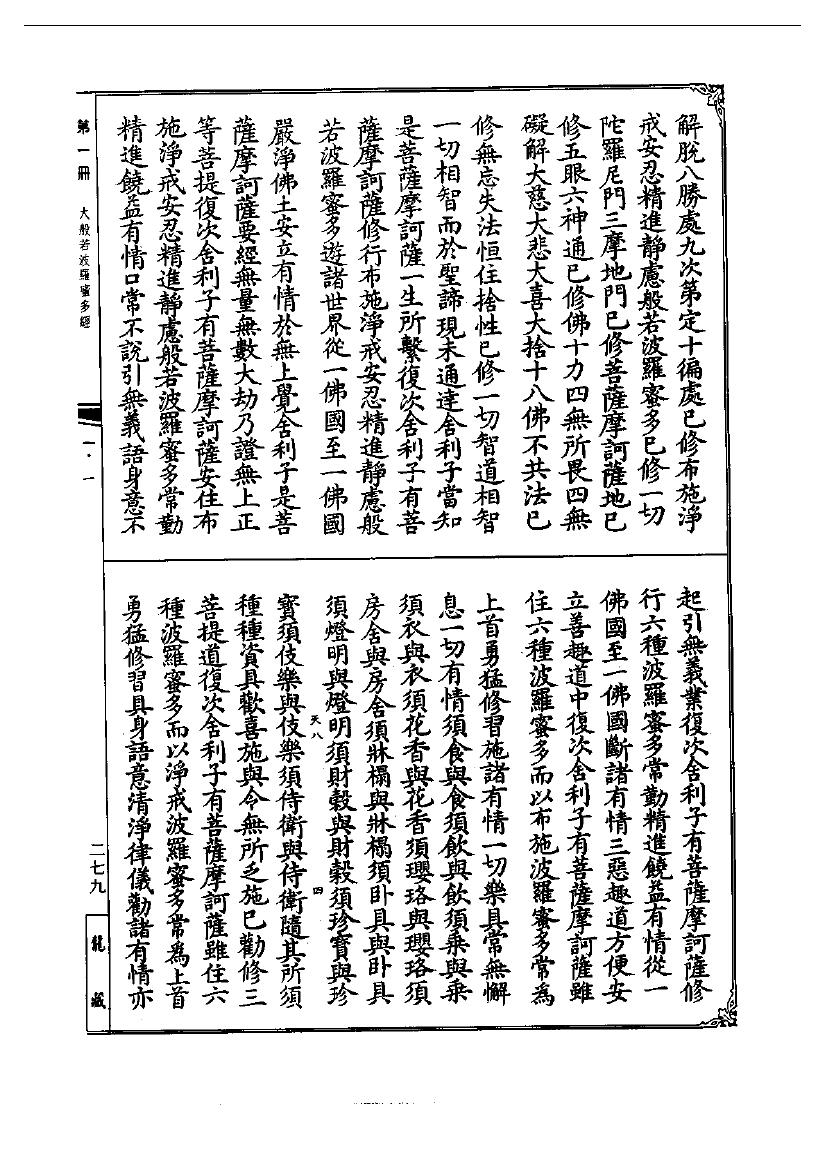 解脫八勝處九次第定十徧處已修布施淨
戒安忍精進靜慮般若波羅蜜多已修一切
陀羅尼門三摩地門已修菩薩摩訶薩地已
修五眼六神通已修佛十力四無所畏四無
礙解大慈大悲大喜大捨十八佛不共法已
修無忘失法恒住捨性已修一切智道相智
一切相智而於聖諦現未通達舍利子當知
是菩薩摩訶薩一生所繫復次舍利子有菩
薩摩訶薩修行布施淨戒安忍精進靜慮般
若波羅蜜多遊諸世界從一佛國至一佛國
嚴淨佛土安立有情於無上覺舍利子是菩
薩摩訶薩要經無量無數大劫乃證無上正
等菩提復次舍利子有菩薩摩訶薩安住布
施淨戒安忍精進靜慮般若波羅蜜多常勤
精進饒益有情口常不說引無義語身意不
起引無義業復次舍利子有菩薩摩訶薩修
行六種波羅蜜多常勤精進饒益有情從一
佛國至一佛國斷諸有情三惡趣道方便安
立善趣道中復次舍利子有菩薩摩訶薩雖
住六種波羅蜜多而以布施波羅蜜多常為
上首勇猛修習施諸有情一切樂具常無懈
息一切有情須食與食須飲與飲須乘與乘
須衣與衣須花香與花香須瓔珞與瓔珞須
房舍與房舍須牀榻與牀榻須卧具與卧具
須燈明與燈明須財穀與財穀須珍寶與珍
天八 四
寶須伎樂與伎樂須侍衛與侍衛隨其所須
種種資具歡喜施與令無所乏施已勸修三
菩提道復次舍利子有菩薩摩訶薩雖住六
種波羅蜜多而以淨戒波羅蜜多常為上首
勇猛修習具身語意清淨律儀勸諸有情亦
第一冊 大般若波羅蜜多經
一·一
二七九
龍藏